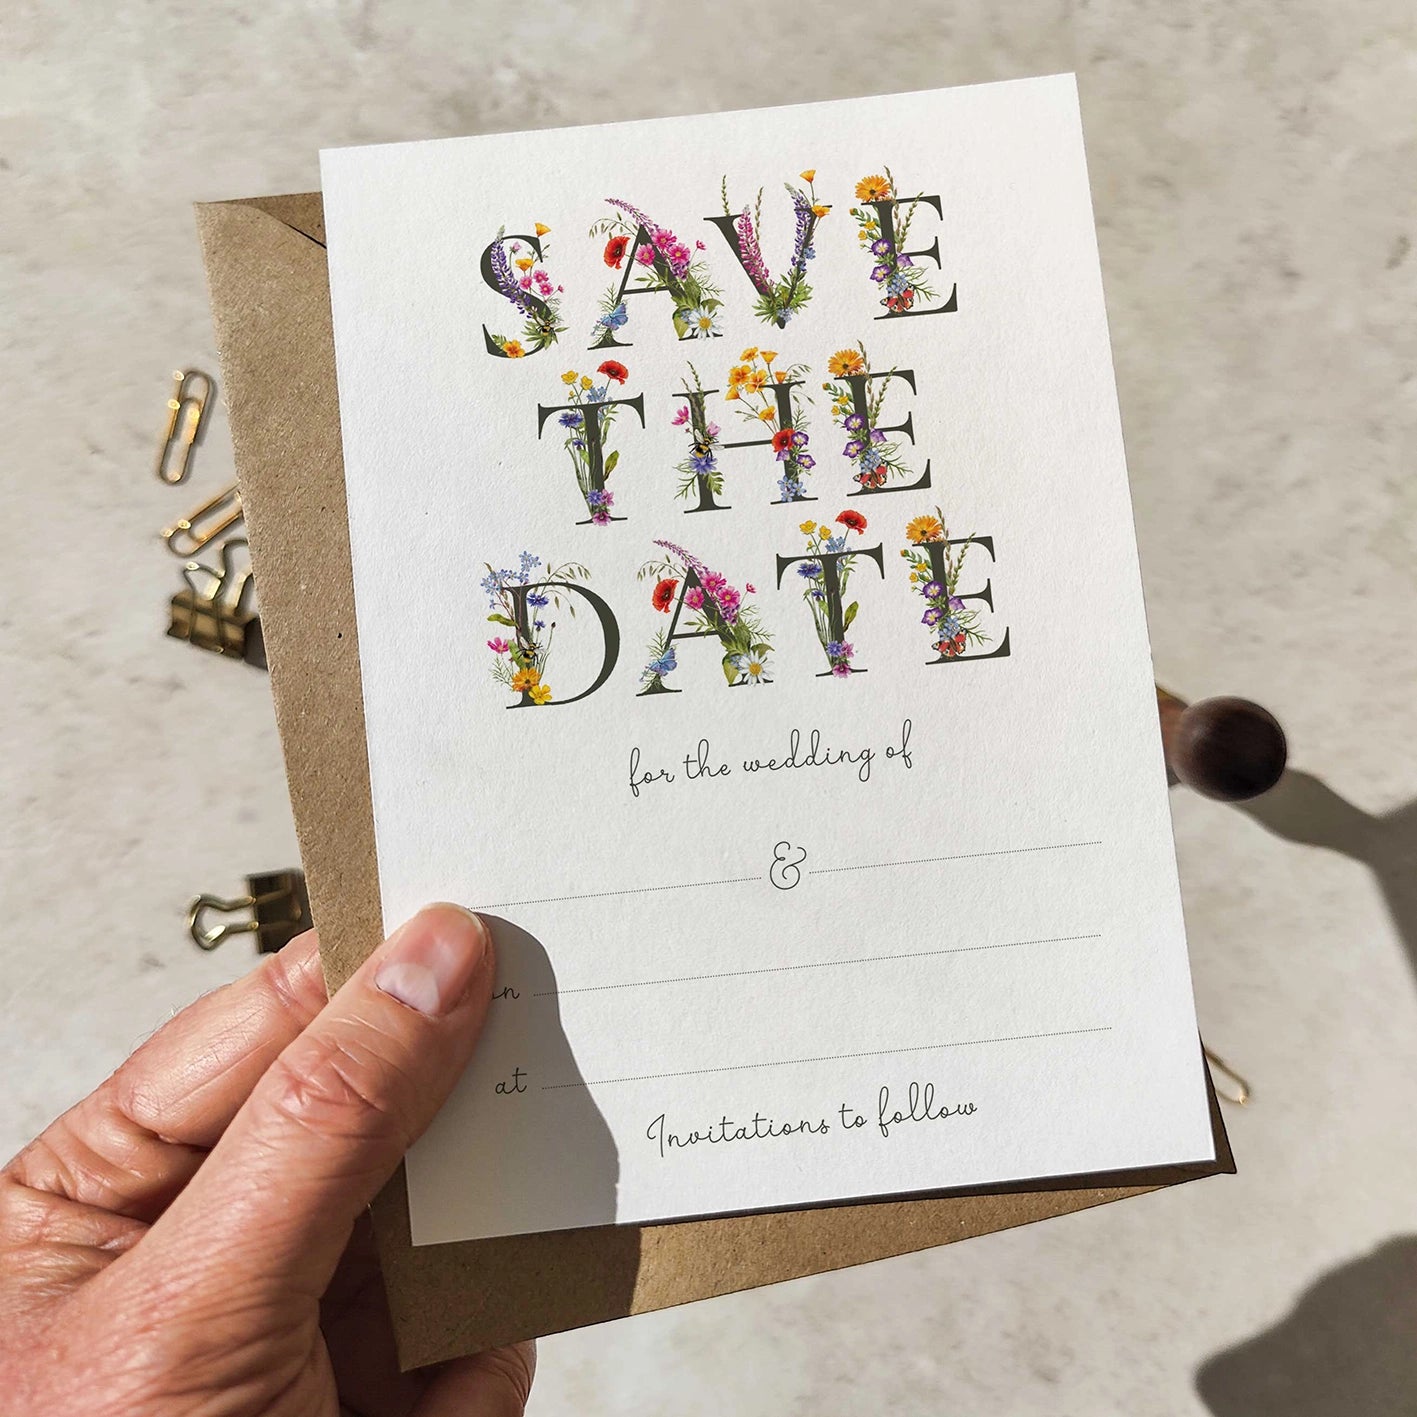 SAVE
THE
DATE
for the wedding of
&
on
at
Invitations to follow